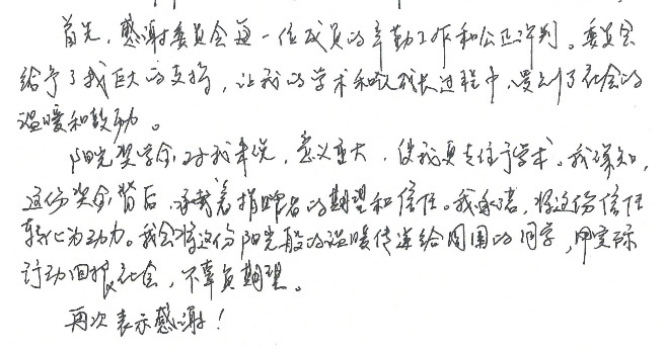 首先,感谢委员会每一位成员的辛勤工作和公正评判。委员会
给予了我巨大的支持,让我的学术和成长过程中,受到了社会的
温暖和鼓励。
阳光奖学金对我来说,意义重大,使我更专注于学术。我深知,
这份奖金背后,承载着捐赠者的期望和信任。我承诺,将这份信任
转化为动力。我会将这份阳光般的温暖传递给周围的同学,用实际
行动回报社会,不辜负期望。
再次表示感谢!